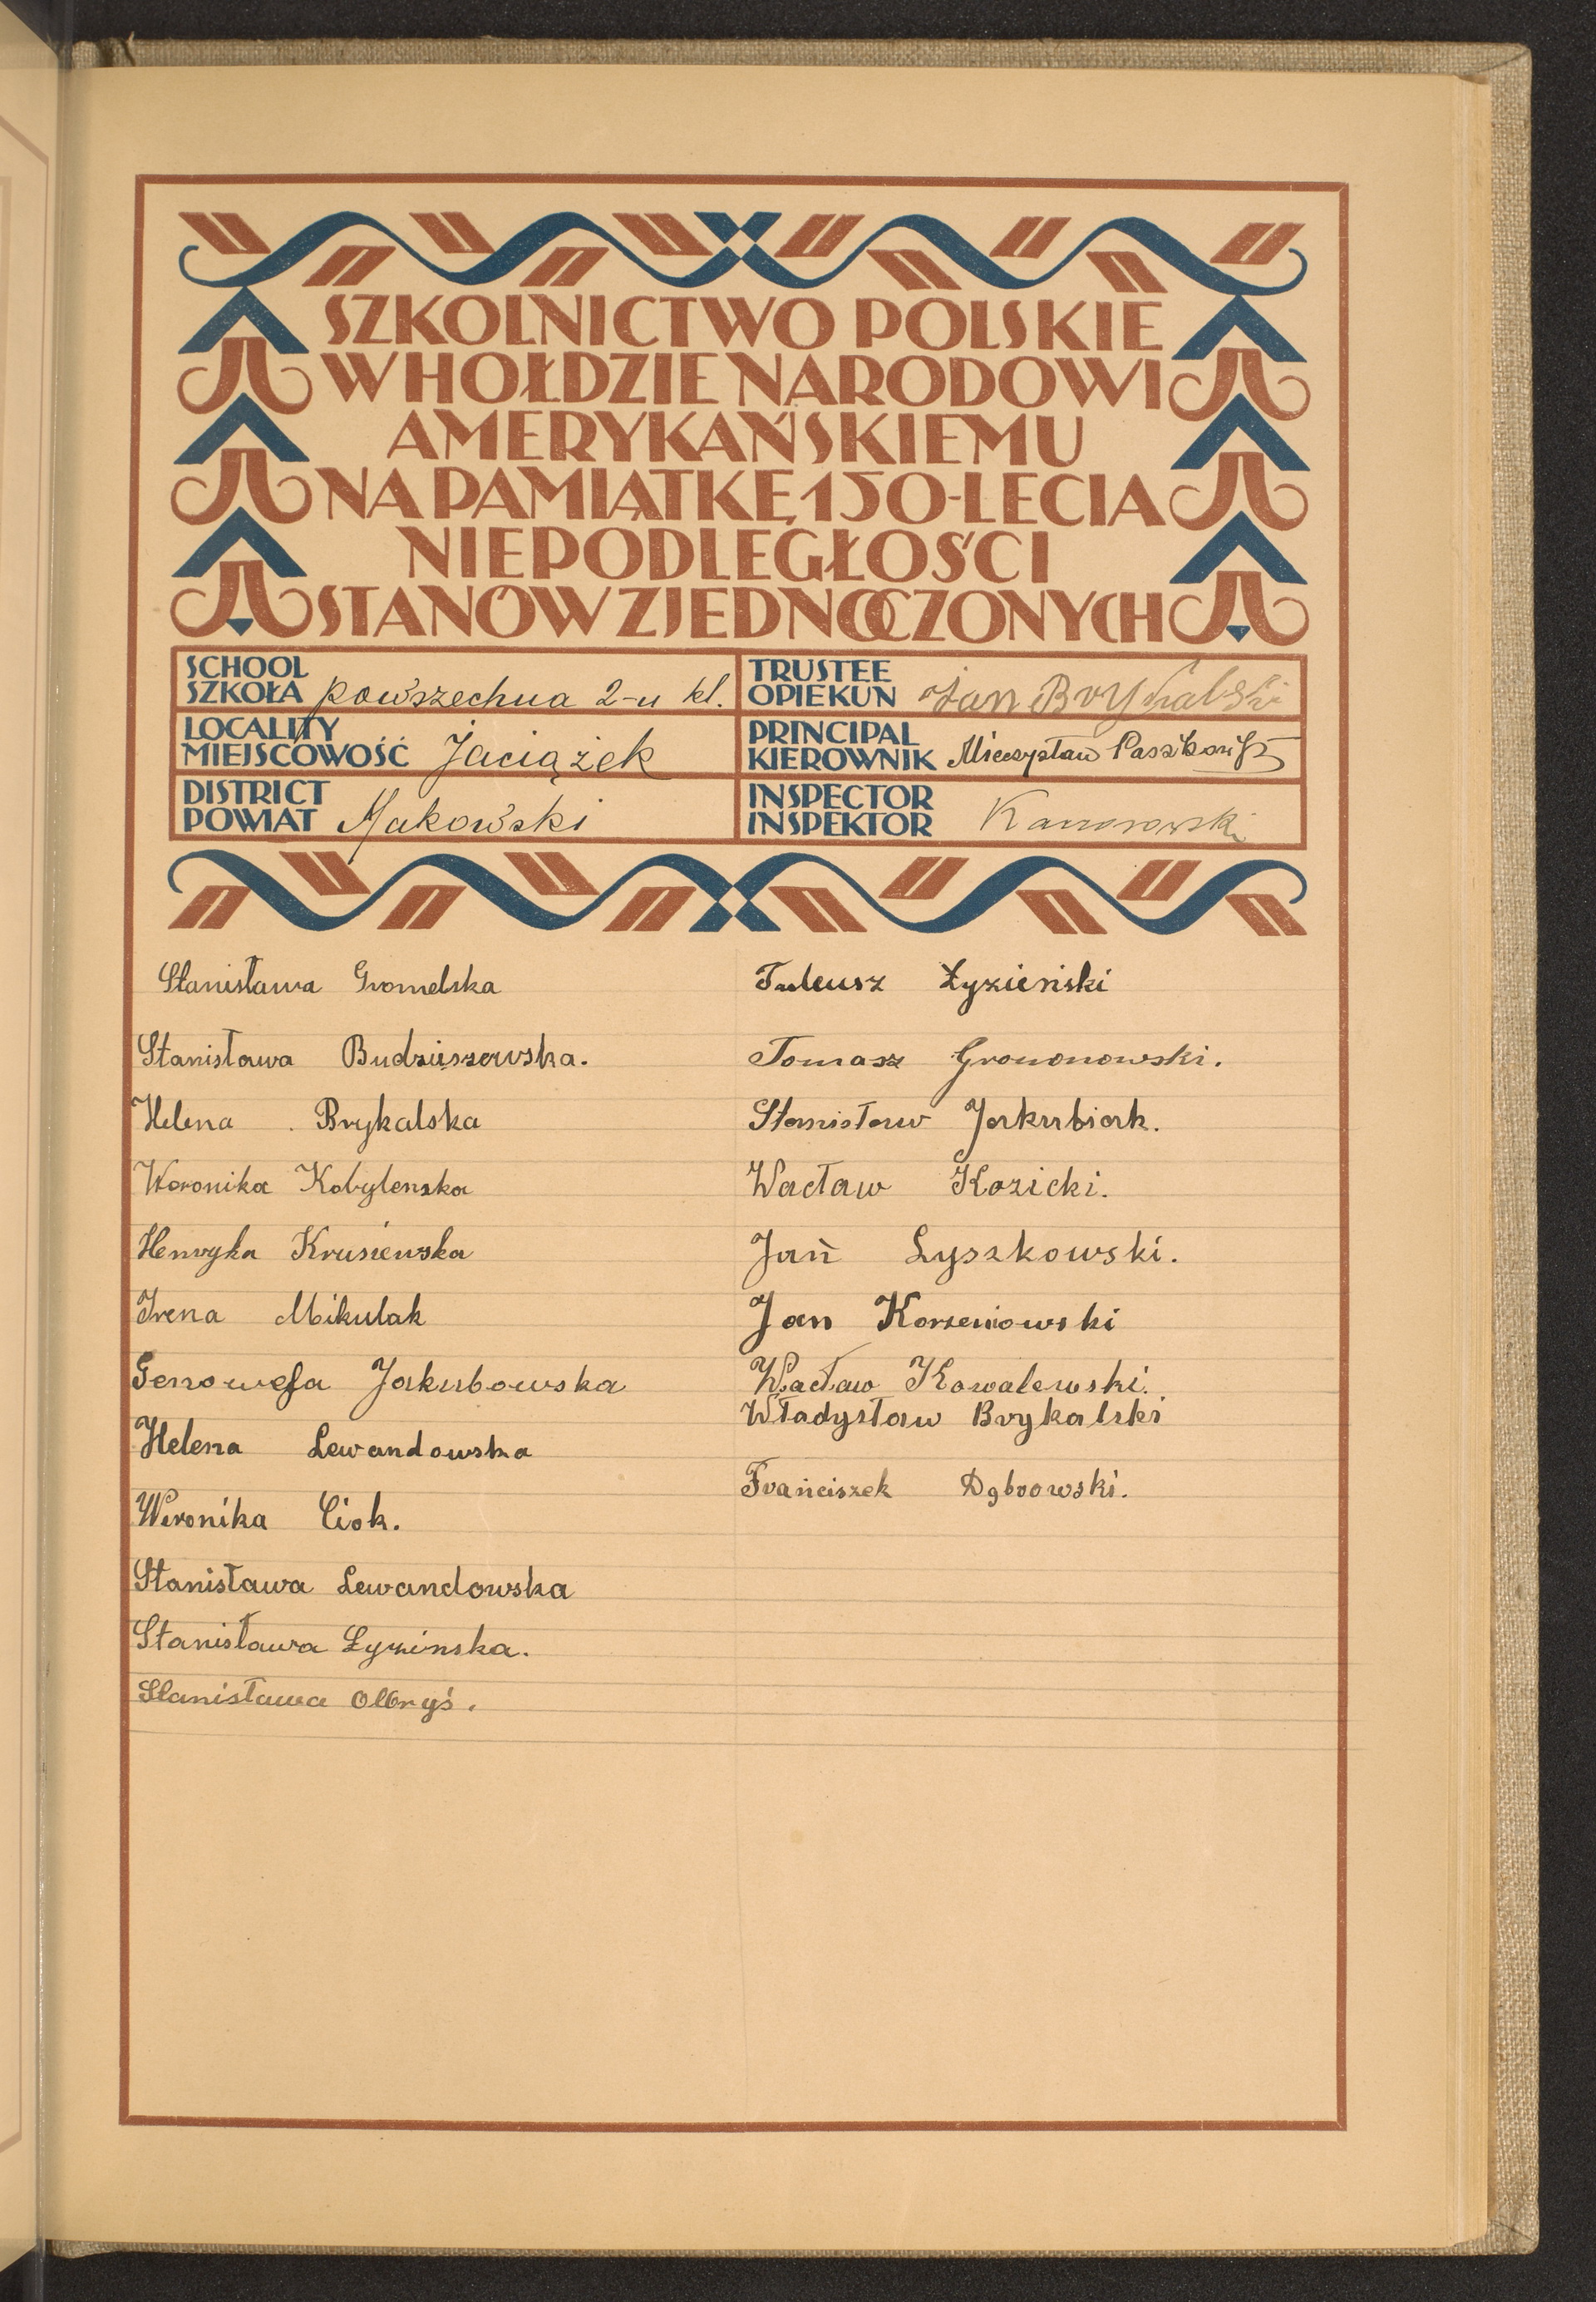 SZKOLNICTWO POLSKIE
W HOŁDZIE NARODOWI
AMERYKAŃSKIEMU
NA PAMIĄTKĘ 150-LECIA
NIEPODLEGŁOŚCI
STANÓW ZJEDNOCZONYCH
SCHOOL
SZKOŁA powszechna 2-u kl.
LOCALITY
MIEJSCOWOŚĆ Jaciążek
DISTRICT
POWIAT Makowski
TRUSTEE
OPIEKUN Jan Brykalski
PRINCIPAL
KIEROWNIK Mieczysław
INSPECTOR
INSPEKTOR
Stanisława Gromelska
Stanisława Budziszewska.
Helena Brykalska
Weronika Kobylenska
Henryka Krusiewska
Irena Mikulak
Genowefa Jakubowska
Helena Lewandowska
Weronika Ciok.
Stanisława Lewandowska
Stanisława Łyzinska.
Stanisława Olbryś.
Tadeusz Łyzieński
Tomasz Grononowski.
Stanisław Jakubiak.
Wacław Kozicki.
Jan Łyszkowski.
Jan Korzeniowski
Wacław Kowalewski.
Władysław Brykalski
Franciszek Dąbrowski.